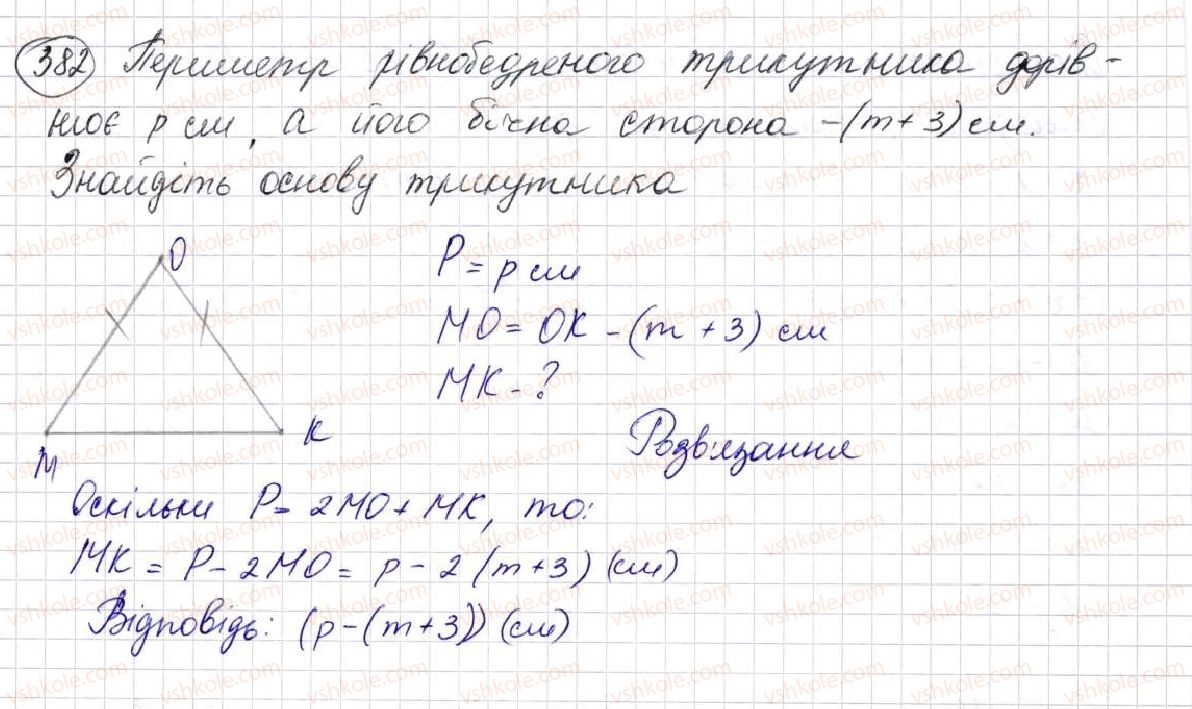 382 Периметр рівнобедреного трикутника дорів-
нює p см, а його бічна сторона -(m+3) см.
Знайдіть основу трикутника
O
P = p см
MO = OK - (m + 3) см
MK - ?
K
M
Розв'язання
Оскільки P = 2MO + MK, то:
MK = P - 2MO = p - 2 (m+3) (см)
Відповідь: (p - (m+3)) (см)
vshkole.com